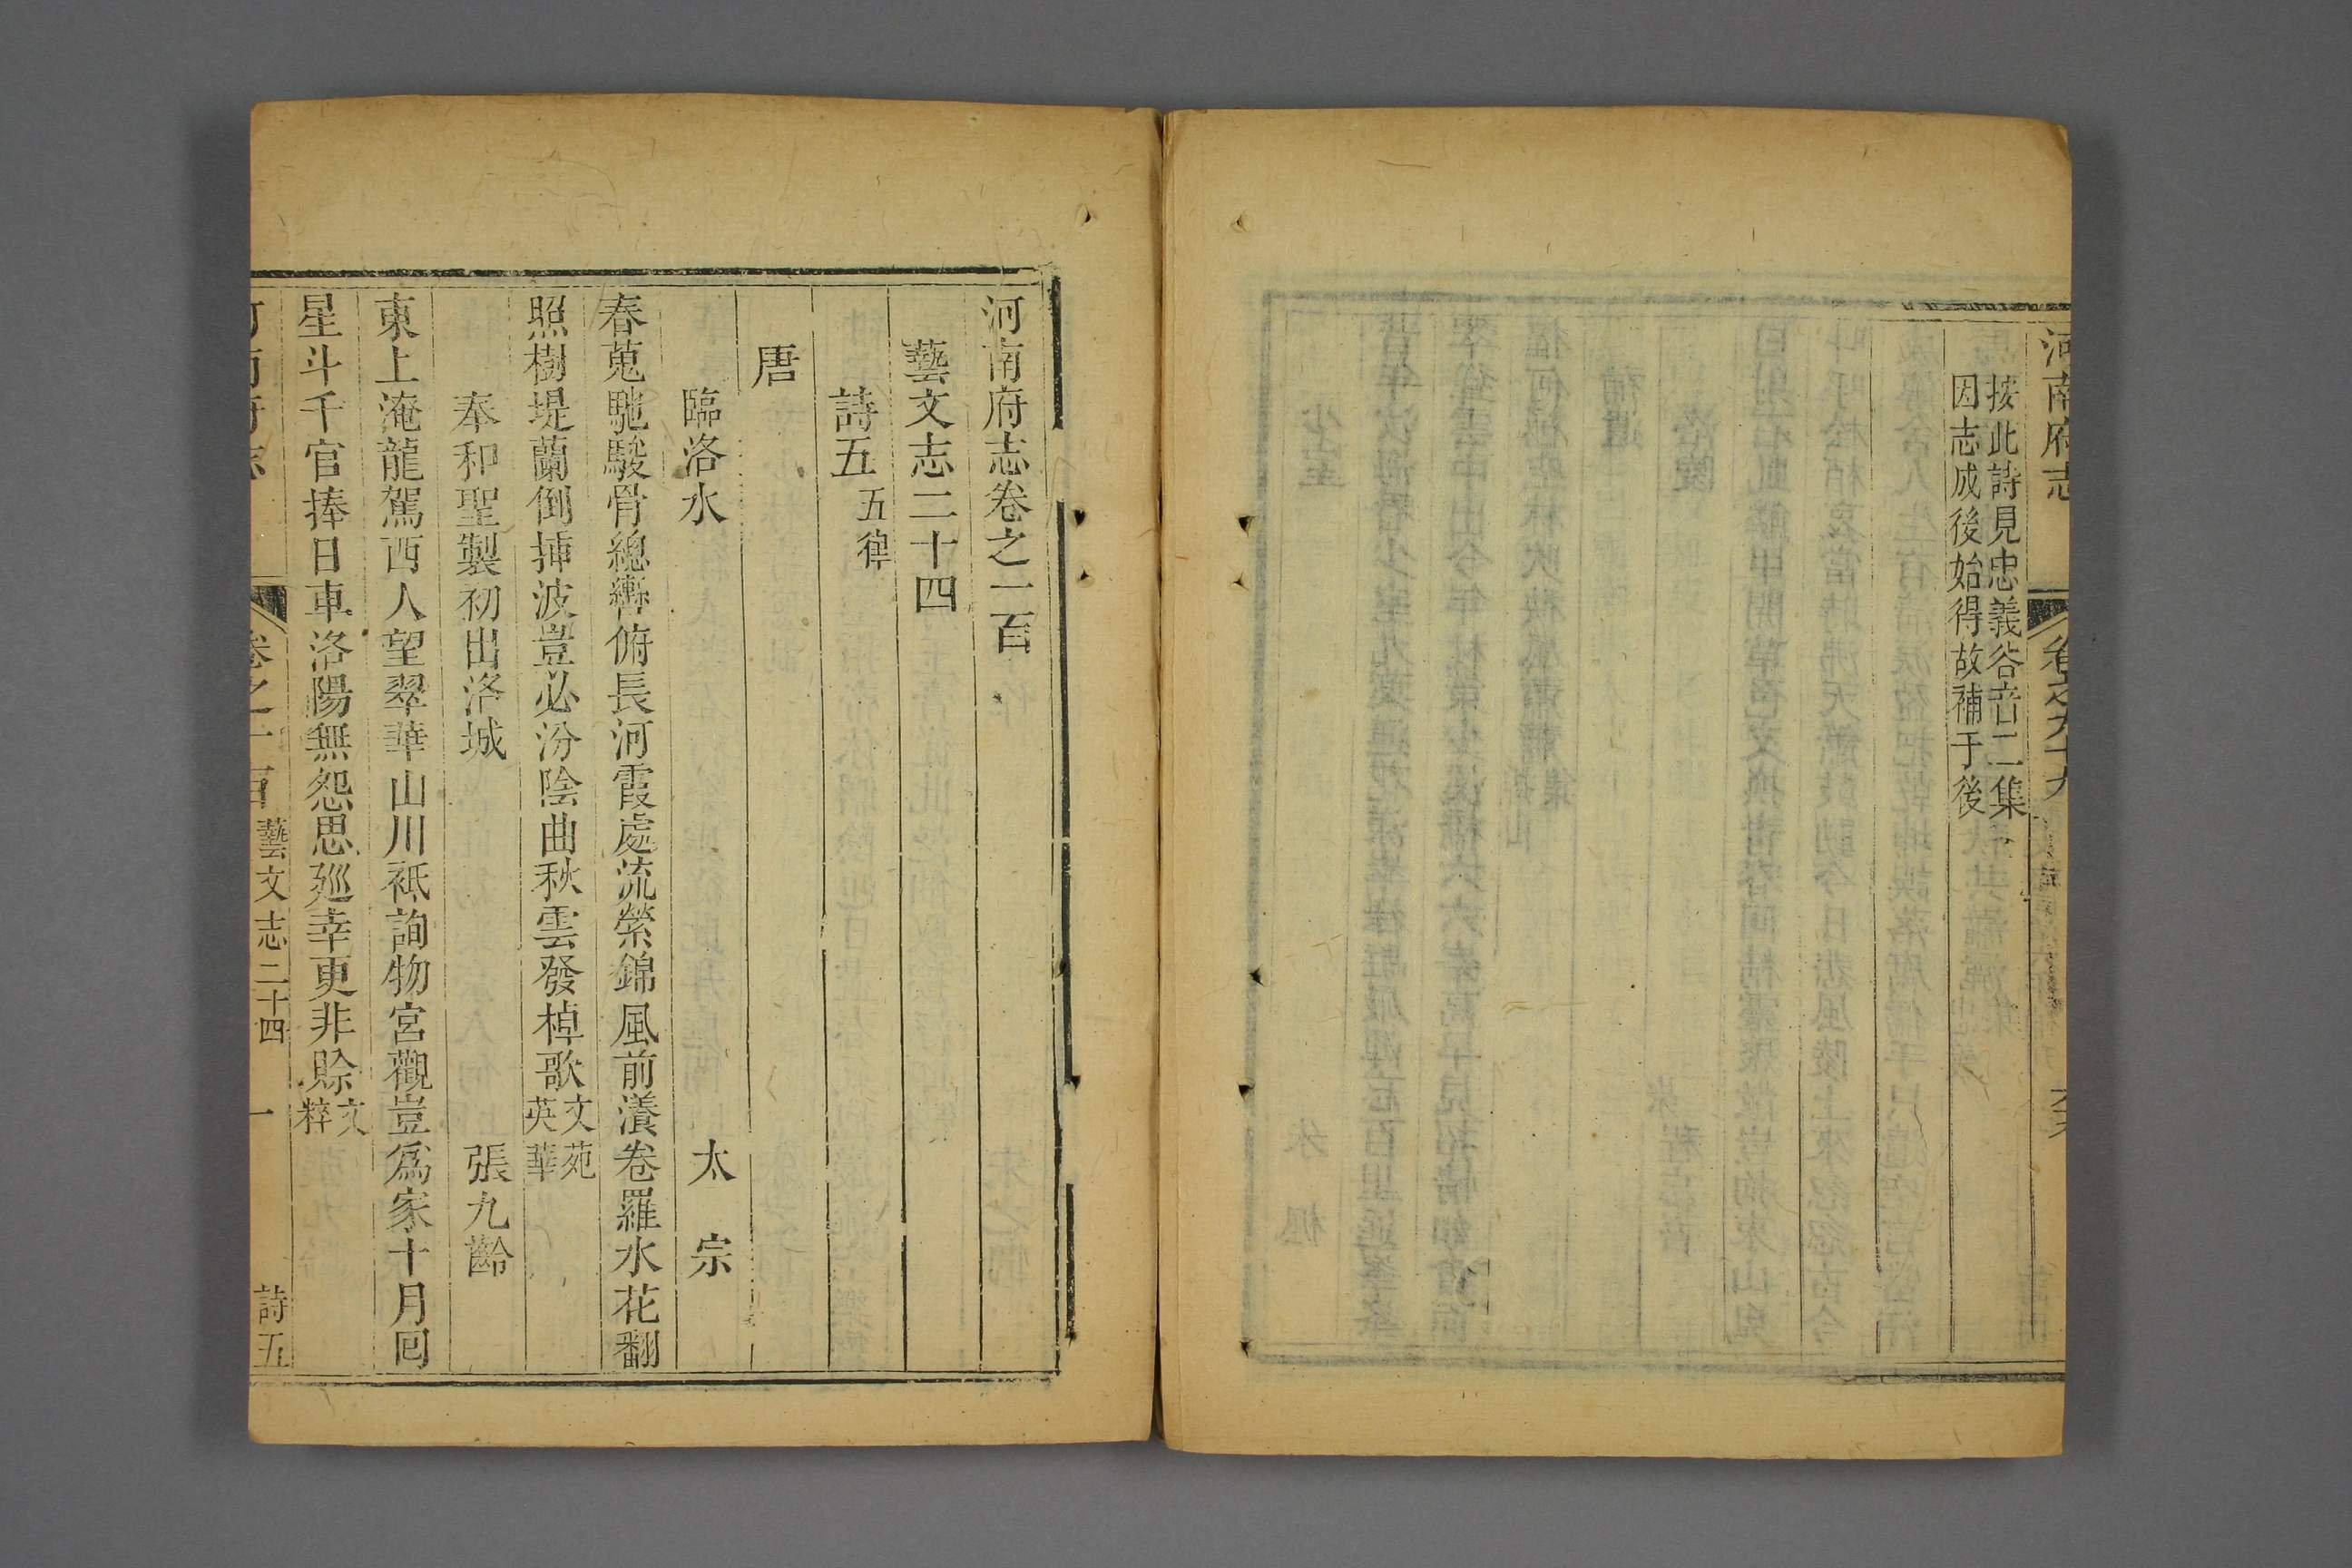 河南府志
卷之九十九
按此詩見忠義谷音二集
因志成後始得故補于後
河南府志卷之一百
藝文志二十四
詩五 五律
唐
臨洛水 太宗
春蒐馳駿骨總轡俯長河霞處流縈錦風前瀁卷羅水花翻
照樹堤蘭倒揷波豈必汾陰曲秋雲發棹歌 文苑英華
奉和聖製初出洛城 張九齡
東上淹龍駕西人望翠華山川祗詢物宮觀豈爲家十月回
星斗千官捧日車洛陽無怨思廵幸更非賒 文粹
河南府志 卷之一百 藝文志二十四 一 詩五